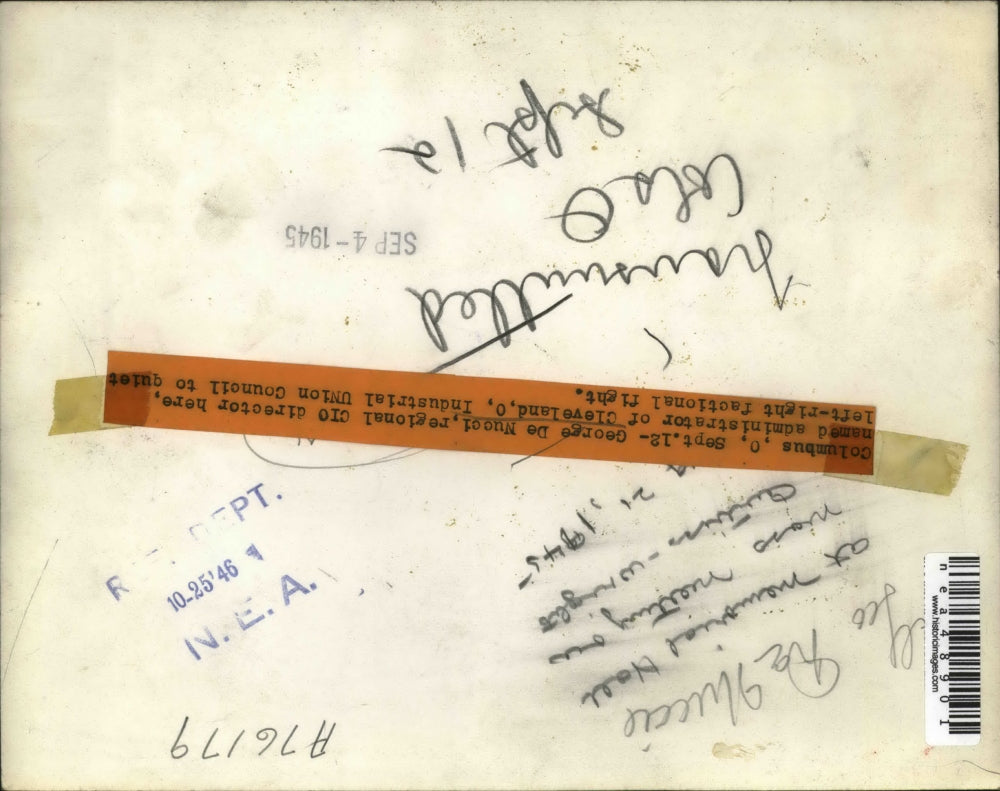 A76179
Geo
De Nuccie
at memorial Hall
mass meeting on
Curtiss-wright
21, 1945
Columbus ,O, Sept.12- George De Nucci,regional CIO director here,
named administrator of Cleveland,O, Industrial UNion Council to quiet
left-right factional fight.
transmitted
Cols O
Sept 12
SEP 4-1945
R DEPT.
10-25'46
N. E. A.
nea48901
www.historicimages.com